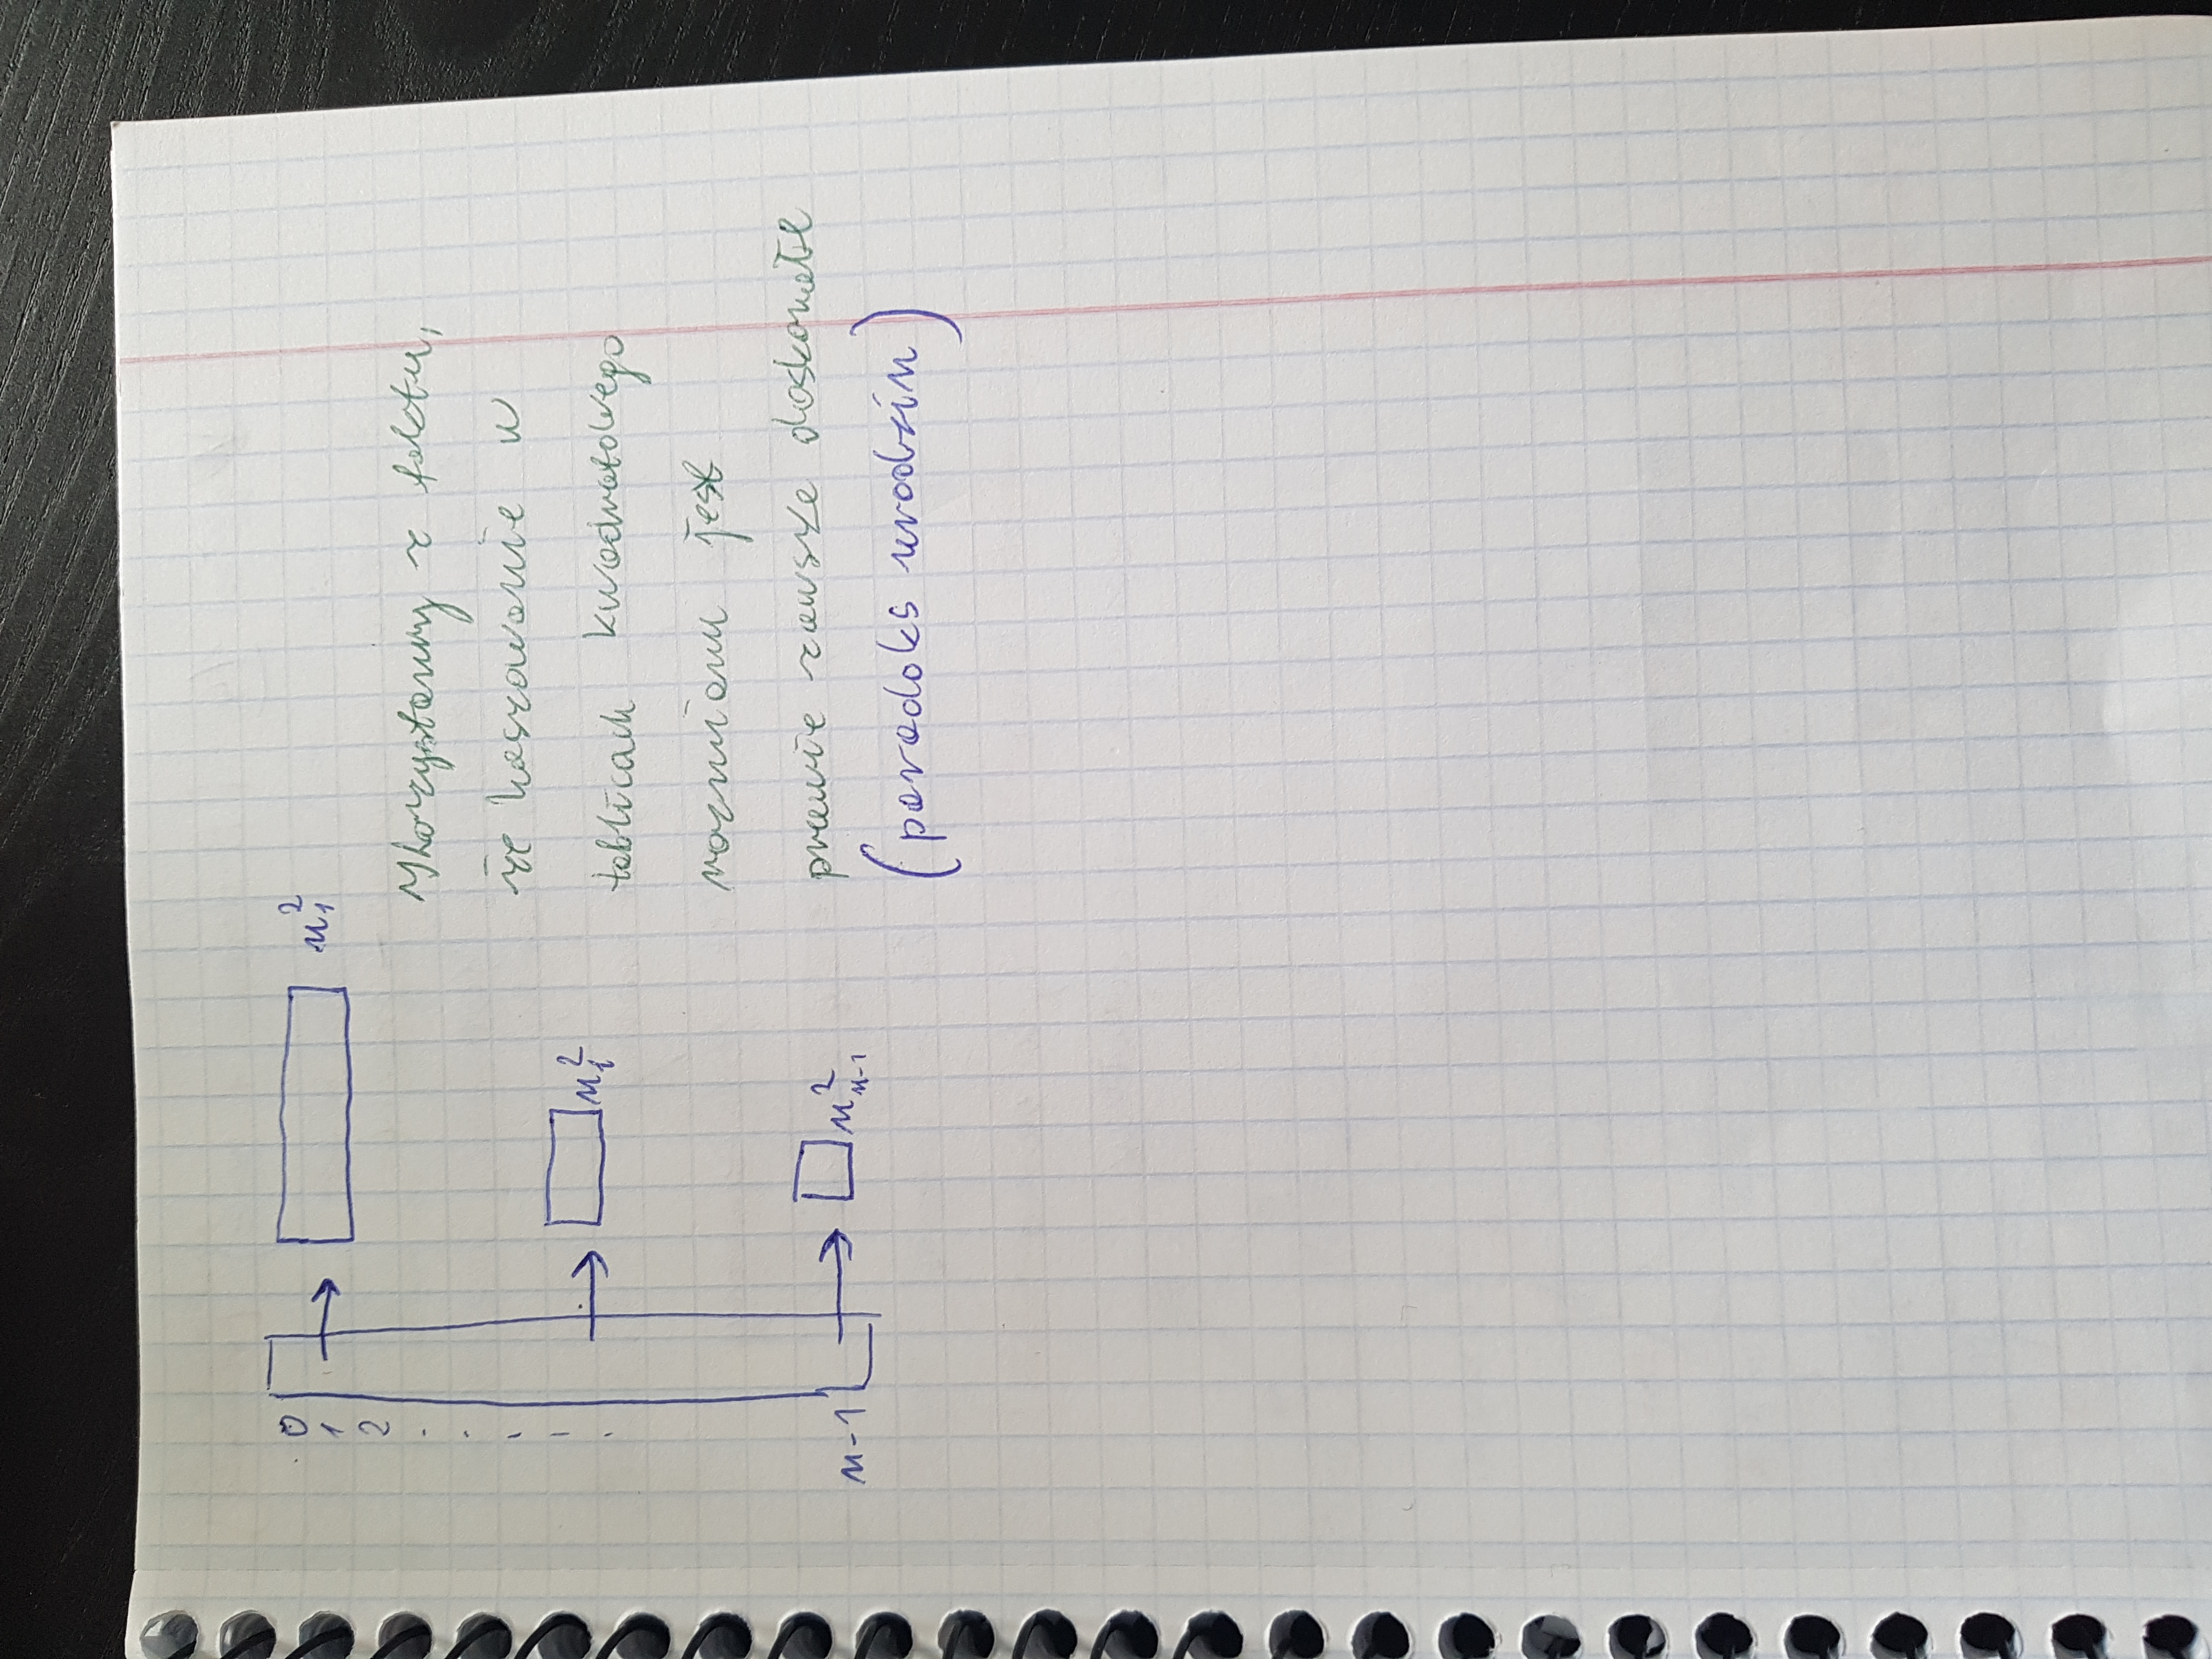 0
1
2
n-1
n₁²
n₁²
n²ₙ₋₁
Wykorzystamy z faktu,
że haszowanie w
tablicach kwadratowego
rozmiaru jest
prawie zawsze doskonałe
(paradoks urodzin)